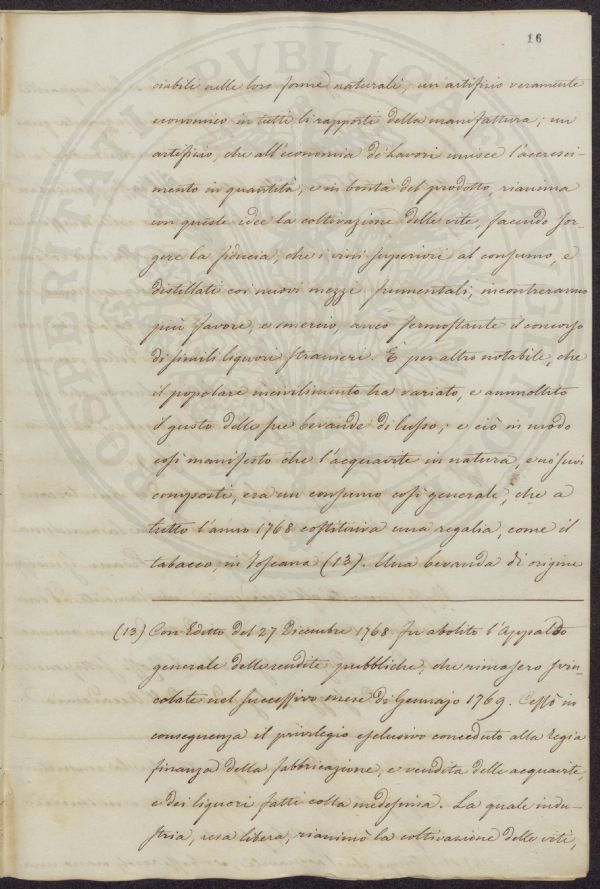 16
ciabili nelle loro forme naturali; un artifizio veramente
economico in tutti li rapporti della manifattura; un
artifizio, che all'economia di lavori unisce l'accresci-
mento in quantità, e in bontà del prodotto, rianima
con queste idee la coltivazione delle vite, facendo sor-
gere la fiducia, che i vini superiori al consumo, e
distillati coi nuovi mezzi frumentali, incontreranno
più favore, e smercio, anco fermostante il concorso
di simili liquori stranieri. È per altro notabile, che
il popolare incivilimento ha variato, e ammollito
il gusto delle sue bevande di lusso; e ciò in modo
così manifesto che l'acquavite in natura, e nei suoi
composti, era un consumo così generale, che a
tutto l'anno 1768 costituiva una regalia, come il
tabacco, in Toscana (13). Una bevanda di origine
(13) Con Editto del 27 Dicembre 1768 fu abolito l'Appalto
generale delle rendite pubbliche, che rimasero svin-
colate nel successivo mese di Gennajo 1769. Cessò in
conseguenza il privilegio esclusivo conceduto alla regia
finanza della fabbricazione, e vendita delle acquavite,
e dei liquori fatti colla medesima. La quale indu-
stria, resa libera, rianimò la coltivazione delle viti,
PROSPERITATI PVBLICAE